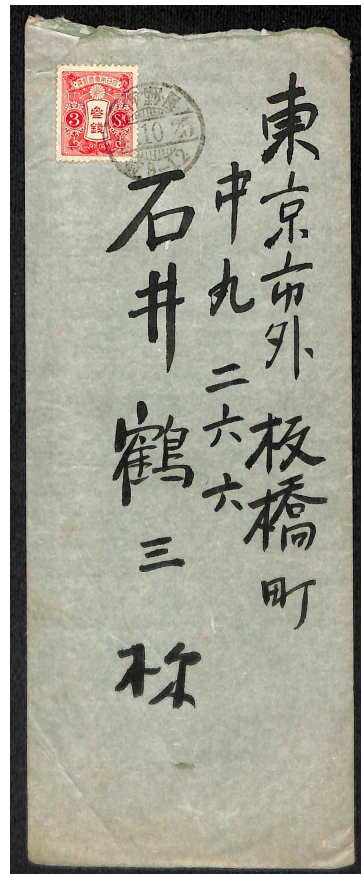 東京市外板橋町
中丸二六六
石井鶴三様
3 参銭 Sn.
10